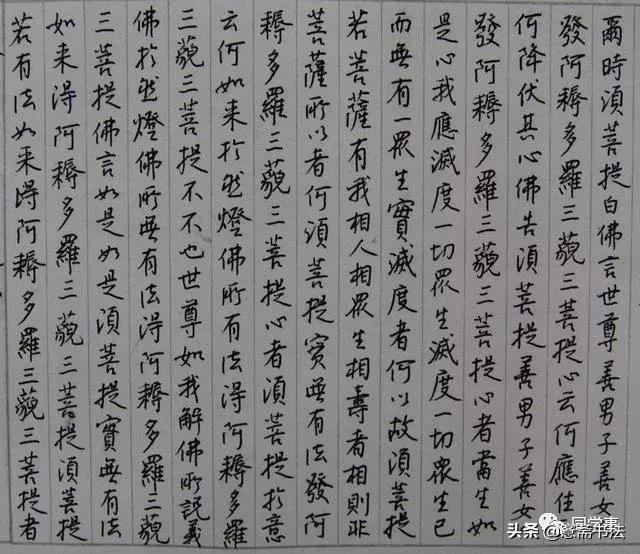 爾時須菩提白佛言世尊善男子善女
發阿耨多羅三藐三菩提心云何應住
何降伏其心佛告須菩提善男子善女
發阿耨多羅三藐三菩提心者當生如
是心我應滅度一切眾生滅度一切眾生已
而無有一眾生實滅度者何以故須菩提
若菩薩有我相人相眾生相壽者相則非
菩薩所以者何須菩提實無有法發阿
耨多羅三藐三菩提心者須菩提於意
云何如来於然燈佛所有法得阿耨多羅
三藐三菩提不不也世尊如我解佛所說義
佛於然燈佛所無有法得阿耨多羅三藐
三菩提佛言如是如是須菩提實無有法
如来得阿耨多羅三藐三菩提須菩提
若有法如来得阿耨多羅三藐三菩提者
同学事
头条